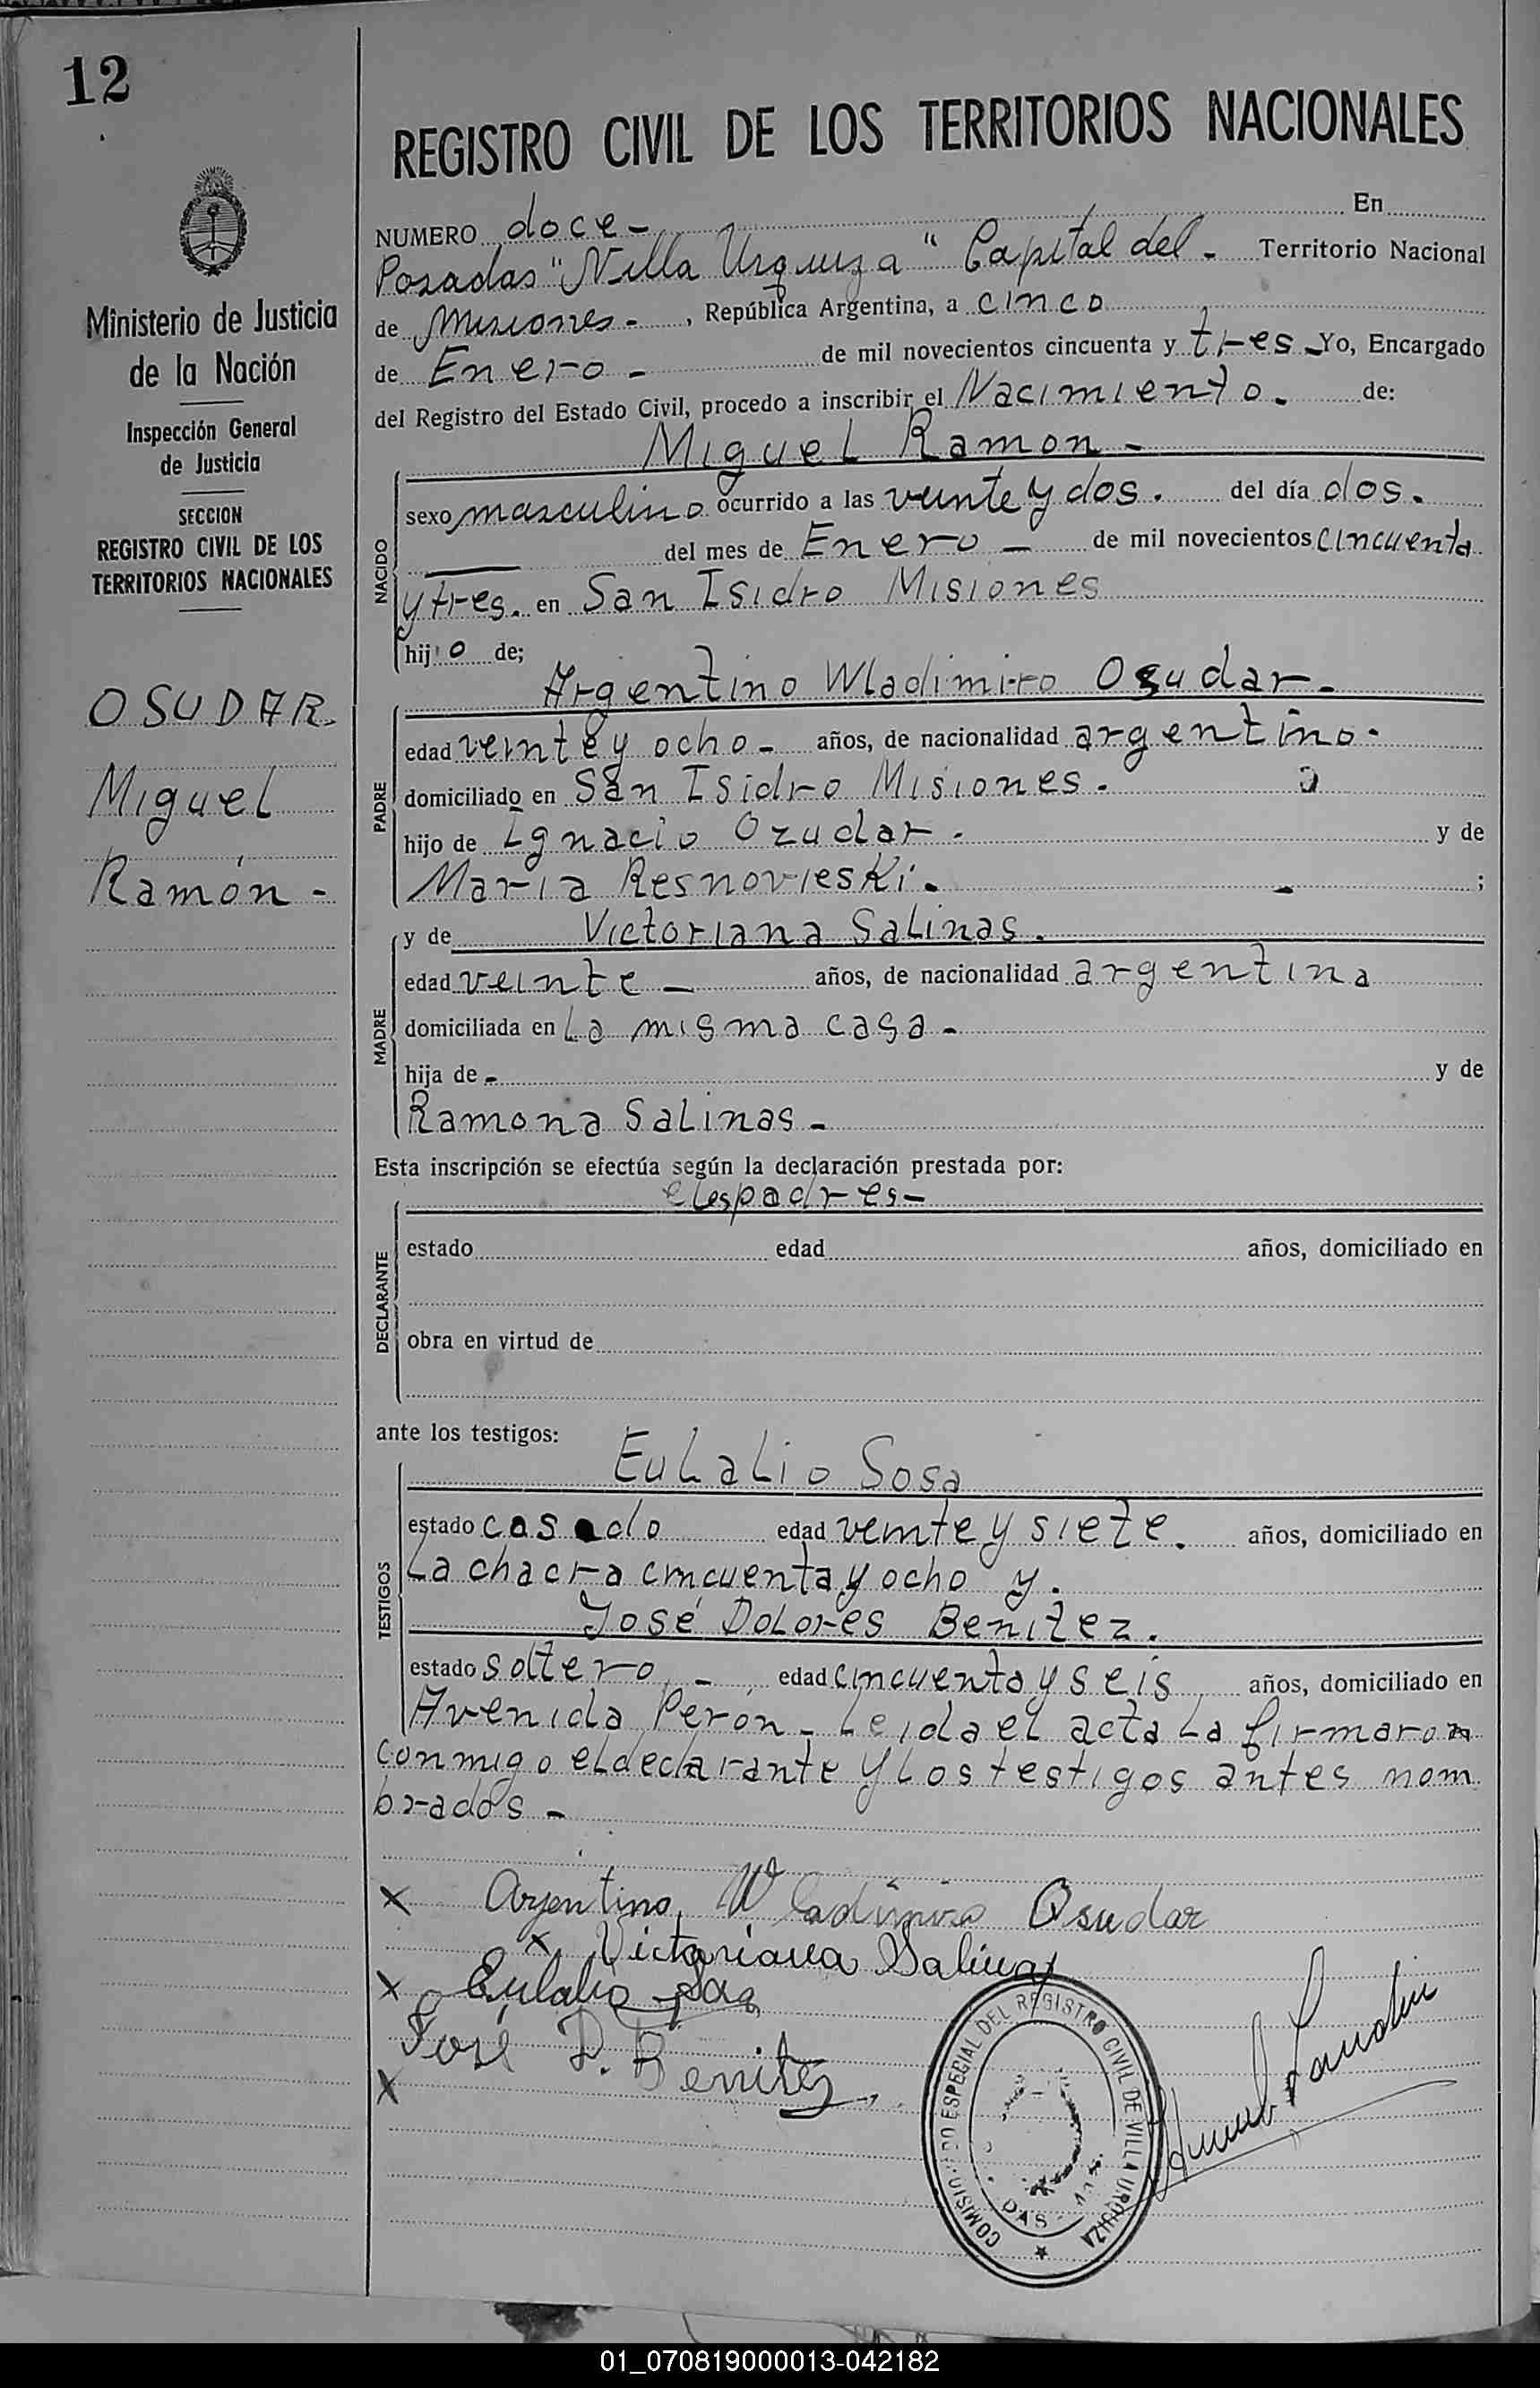 12
Ministerio de Justicia
de la Nación
Inspección General
de Justicia
SECCION
REGISTRO CIVIL DE LOS
TERRITORIOS NACIONALES
OSUDAR
Miguel
Ramón -
REGISTRO CIVIL DE LOS TERRITORIOS NACIONALES
NUMERO doce - En
Posadas "Villa Urquiza" Capital del - Territorio Nacional
de Misiones - , República Argentina, a cinco
de Enero - de mil novecientos cincuenta y tres - Yo, Encargado
del Registro del Estado Civil, procedo a inscribir el Nacimiento - de:
Miguel Ramon -
NACIDO
sexo masculino ocurrido a las veinte y dos . del día dos .
del mes de Enero - de mil novecientos cincuenta
y tres . en San Isidro Misiones
hijo de;
Argentino Wladimiro Osudar -
PADRE
edad veinte y ocho - años, de nacionalidad argentino .
domiciliado en San Isidro Misiones .
hijo de Ignacio Ozudar - y de
Maria Resnovieski . ;
MADRE
y de Victoriana Salinas .
edad veinte - años, de nacionalidad argentina
domiciliada en La misma casa -
hija de - y de
Ramona Salinas -
Esta inscripción se efectúa según la declaración prestada por:
DECLARANTE
padres -
estado edad años, domiciliado en
obra en virtud de
ante los testigos:
TESTIGOS
Eulalio Sosa
estado casado edad veinte y siete . años, domiciliado en
La chacra cincuenta y ocho y .
José Dolores Benitez .
estado soltero - edad cincuenta y seis años, domiciliado en
Avenida Perón - Leida el acta la firmaron
conmigo el declarante y los testigos antes nom
brados -
x Argentino Wladimiro Osudar
x Victoriana Salinas
x Eulalio Sosa
José D. Benitez
x
COMISIONADO ESPECIAL DEL REGISTRO CIVIL DE VILLA URQUIZA
01_070819000013-042182